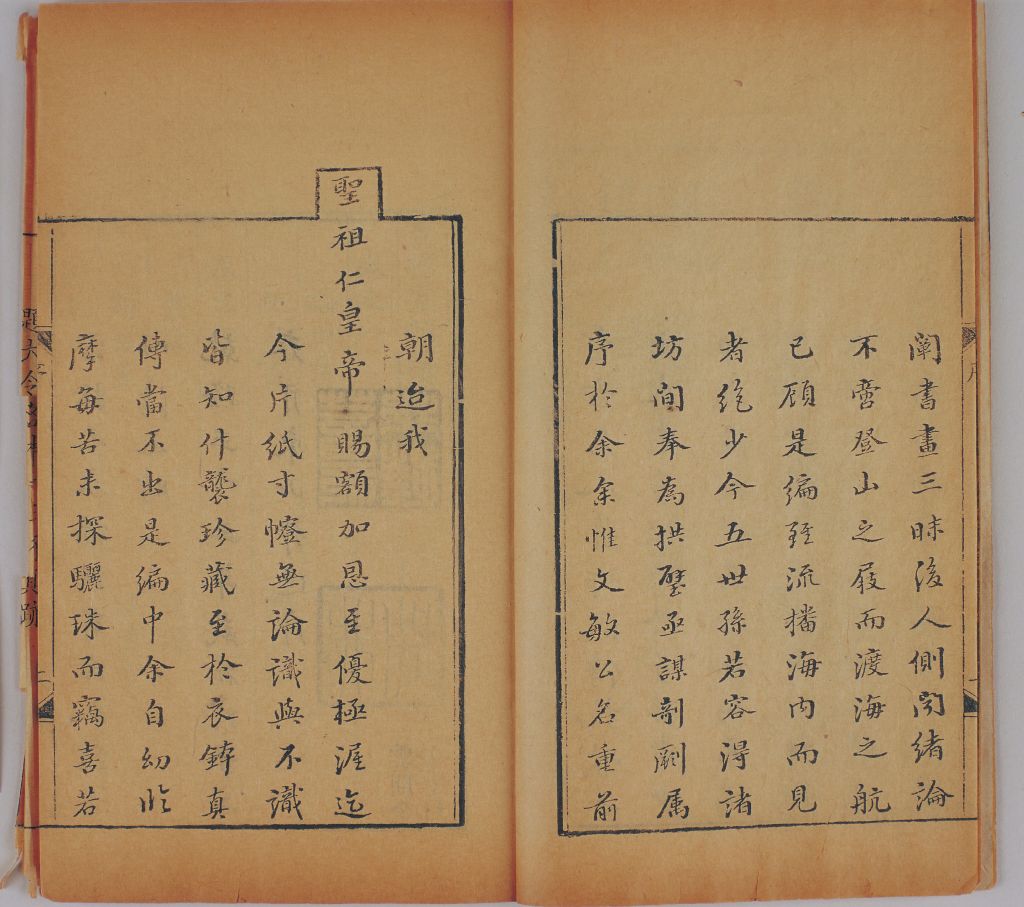 闡書畫三昧後人側聞緒論
不啻登山之屐而渡海之航
已顧是編雖流播海内而見
者絶少今五世孫若容得諸
坊間奉為拱璧亟謀剞劂属
序於余余惟文敏公名重前
朝迨我
聖祖仁皇帝賜額加恩至優極渥迄
今片紙寸幨無論識與不識
皆知什襲珍藏至於衣鉢真
傳當不出是編中余自幼臨
摩每苦未探驪珠而竊喜若